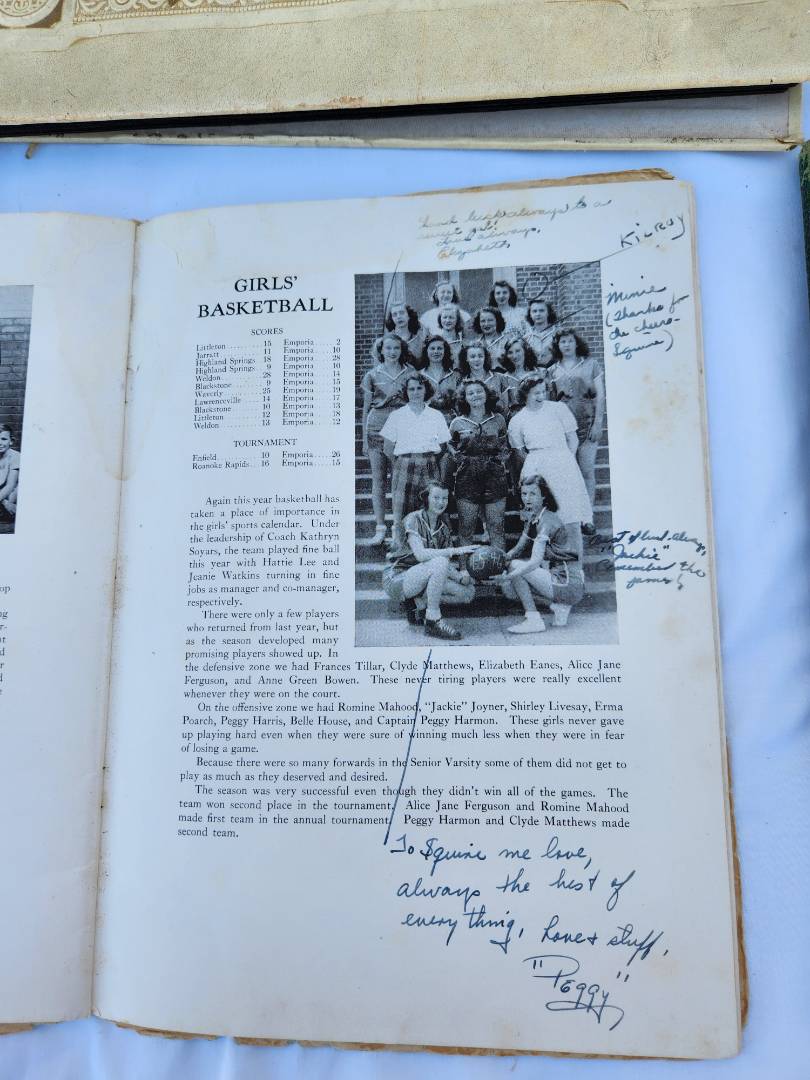 love always,
KILROY
Minie
(Thanks for
the cheers-
Squire)
GIRLS'
BASKETBALL
SCORES
Littleton 15 Emporia 2
Jarratt 11 Emporia 10
Highland Springs 18 Emporia 28
Highland Springs 9 Emporia 10
Weldon 28 Emporia 14
Blackstone 9 Emporia 15
Waverly 25 Emporia 19
Lawrenceville 14 Emporia 17
Blackstone 10 Emporia 13
Littleton 12 Emporia 18
Weldon 13 Emporia 12
TOURNAMENT
Enfield 10 Emporia 26
Roanoke Rapids 16 Emporia 15
Again this year basketball has
taken a place of importance in
the girls' sports calendar. Under
the leadership of Coach Kathryn
Soyars, the team played fine ball
this year with Hattie Lee and
Jeanie Watkins turning in fine
jobs as manager and co-manager,
respectively.
There were only a few players
who returned from last year, but
as the season developed many
promising players showed up. In
the defensive zone we had Frances Tillar, Clyde Matthews, Elizabeth Eanes, Alice Jane
Ferguson, and Anne Green Bowen. These never tiring players were really excellent
whenever they were on the court.
On the offensive zone we had Romine Mahood, "Jackie" Joyner, Shirley Livesay, Erma
Poarch, Peggy Harris, Belle House, and Captain Peggy Harmon. These girls never gave
up playing hard even when they were sure of winning much less when they were in fear
of losing a game.
Because there were so many forwards in the Senior Varsity some of them did not get to
play as much as they deserved and desired.
The season was very successful even though they didn't win all of the games. The
team won second place in the tournament. Alice Jane Ferguson and Romine Mahood
made first team in the annual tournament. Peggy Harmon and Clyde Matthews made
second team.
Best of luck always,
"Jackie"
Remember the
games!
To Squire me love,
always the best of
everything, Love & stuff,
"Peggy"